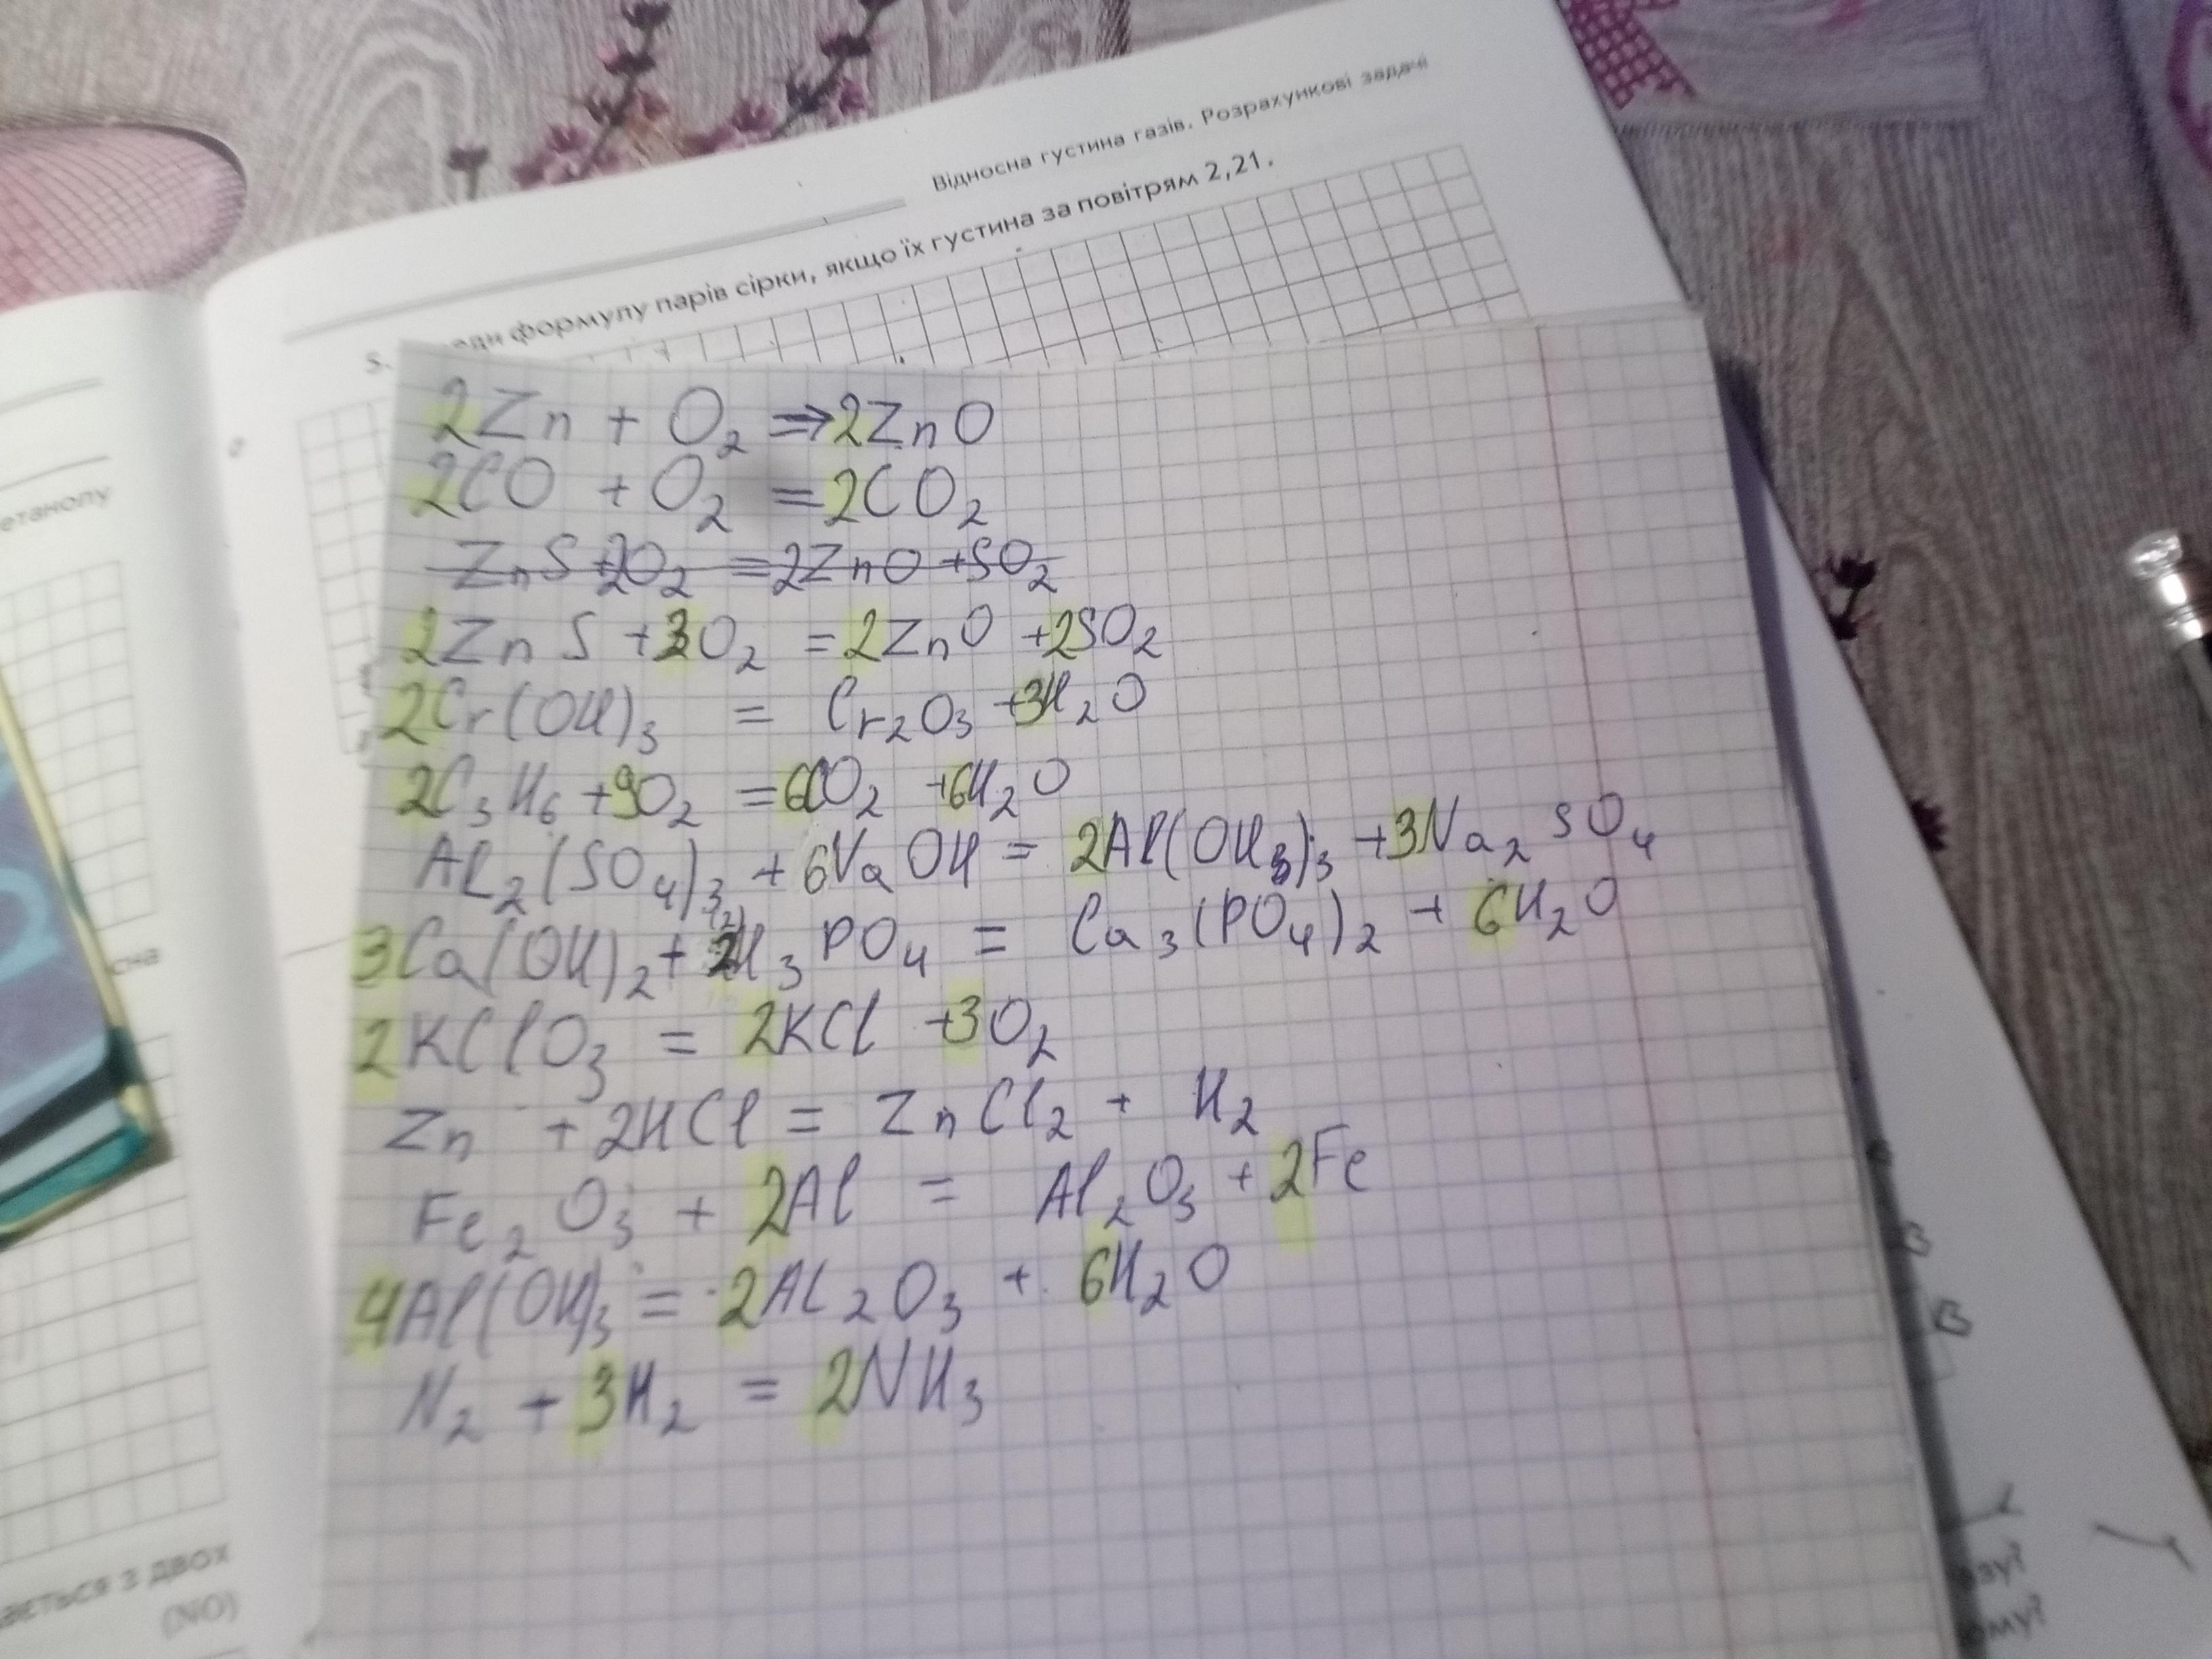 Відносна густина газів. Розрахункові задачі
5. формулу парів сірки, якщо їх густина за повітрям 2,21.
2Zn + O₂ ⇒ 2ZnO
2CO + O₂ = 2CO₂
ZnS + 2O₂ = 2ZnO + SO₂
2ZnS + 3O₂ = 2ZnO + 2SO₂
2Cr(OH)₃ = Cr₂O₃ + 3H₂O
2C₃H₆ + 9O₂ = 6CO₂ + 6H₂O
Al₂(SO₄)₃ + 6NaOH = 2Al(OH₃)₃ + 3Na₂SO₄
3Ca(OH)₂ + 2H₃PO₄ = Ca₃(PO₄)₂ + 6H₂O
2KClO₃ = 2KCl + 3O₂
Zn + 2HCl = ZnCl₂ + H₂
Fe₂O₃ + 2Al = Al₂O₃ + 2Fe
4Al(OH)₃ = 2Al₂O₃ + 6H₂O
N₂ + 3H₂ = 2NH₃
етанолу
з двох
(NO)